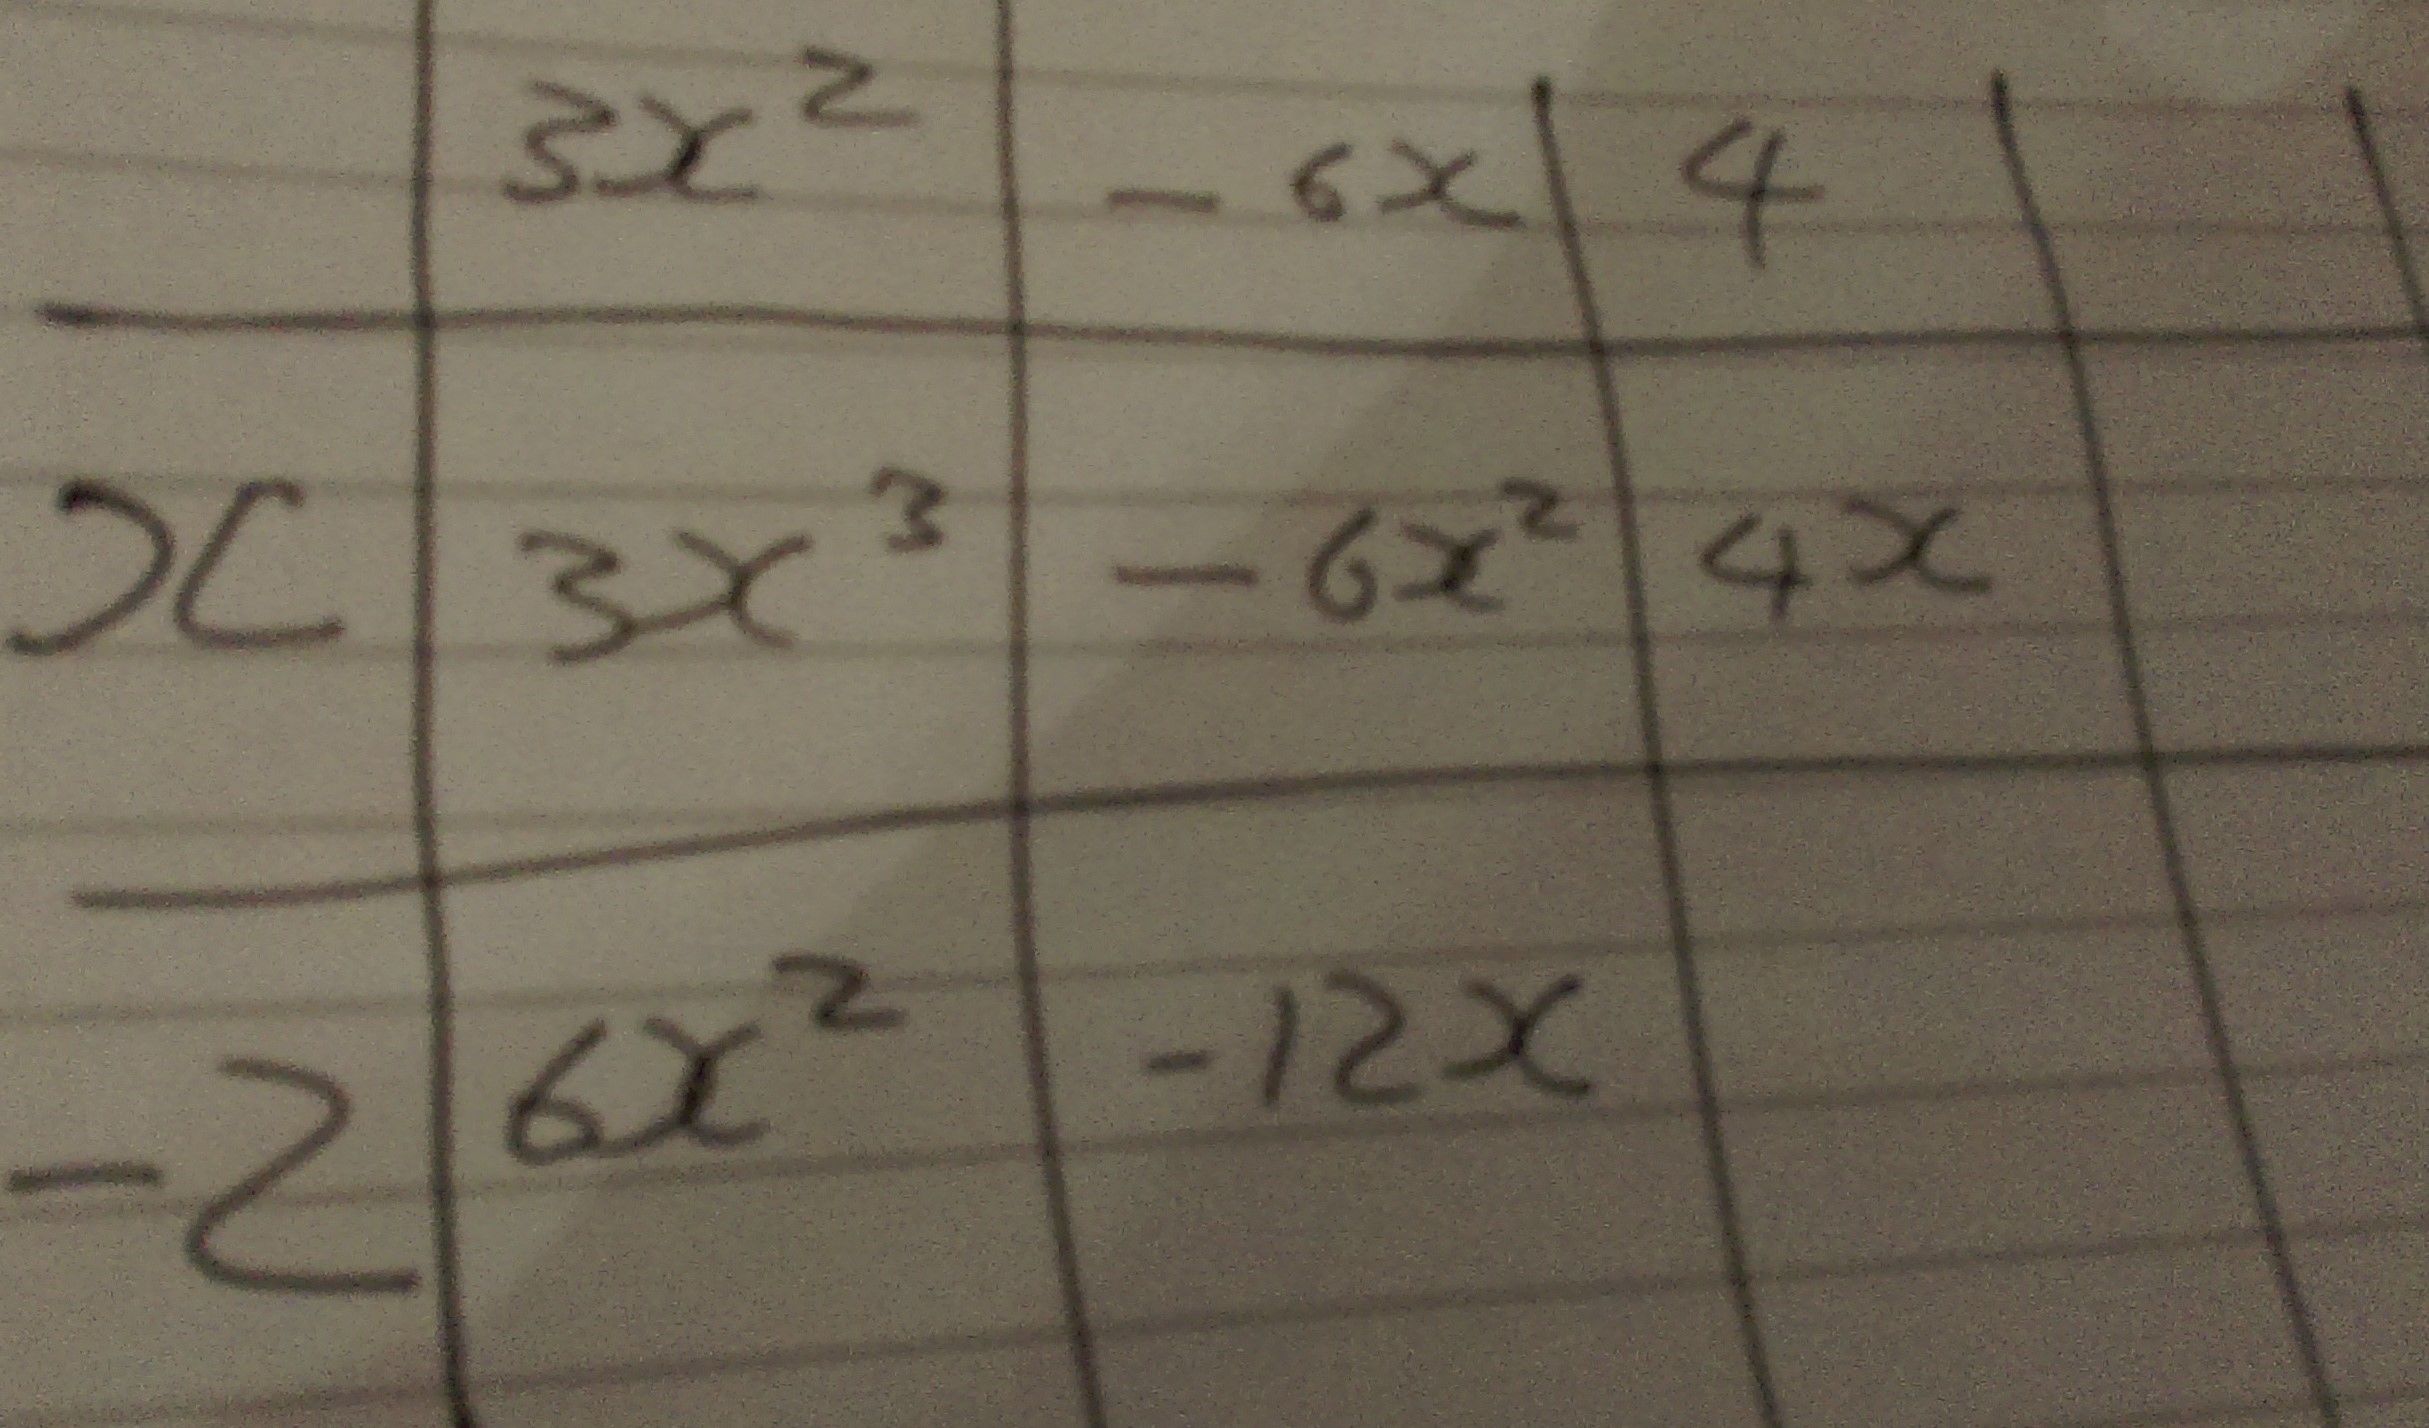 3x² - 6x 4
x 3x³ - 6x² 4x
-2 6x² -12x